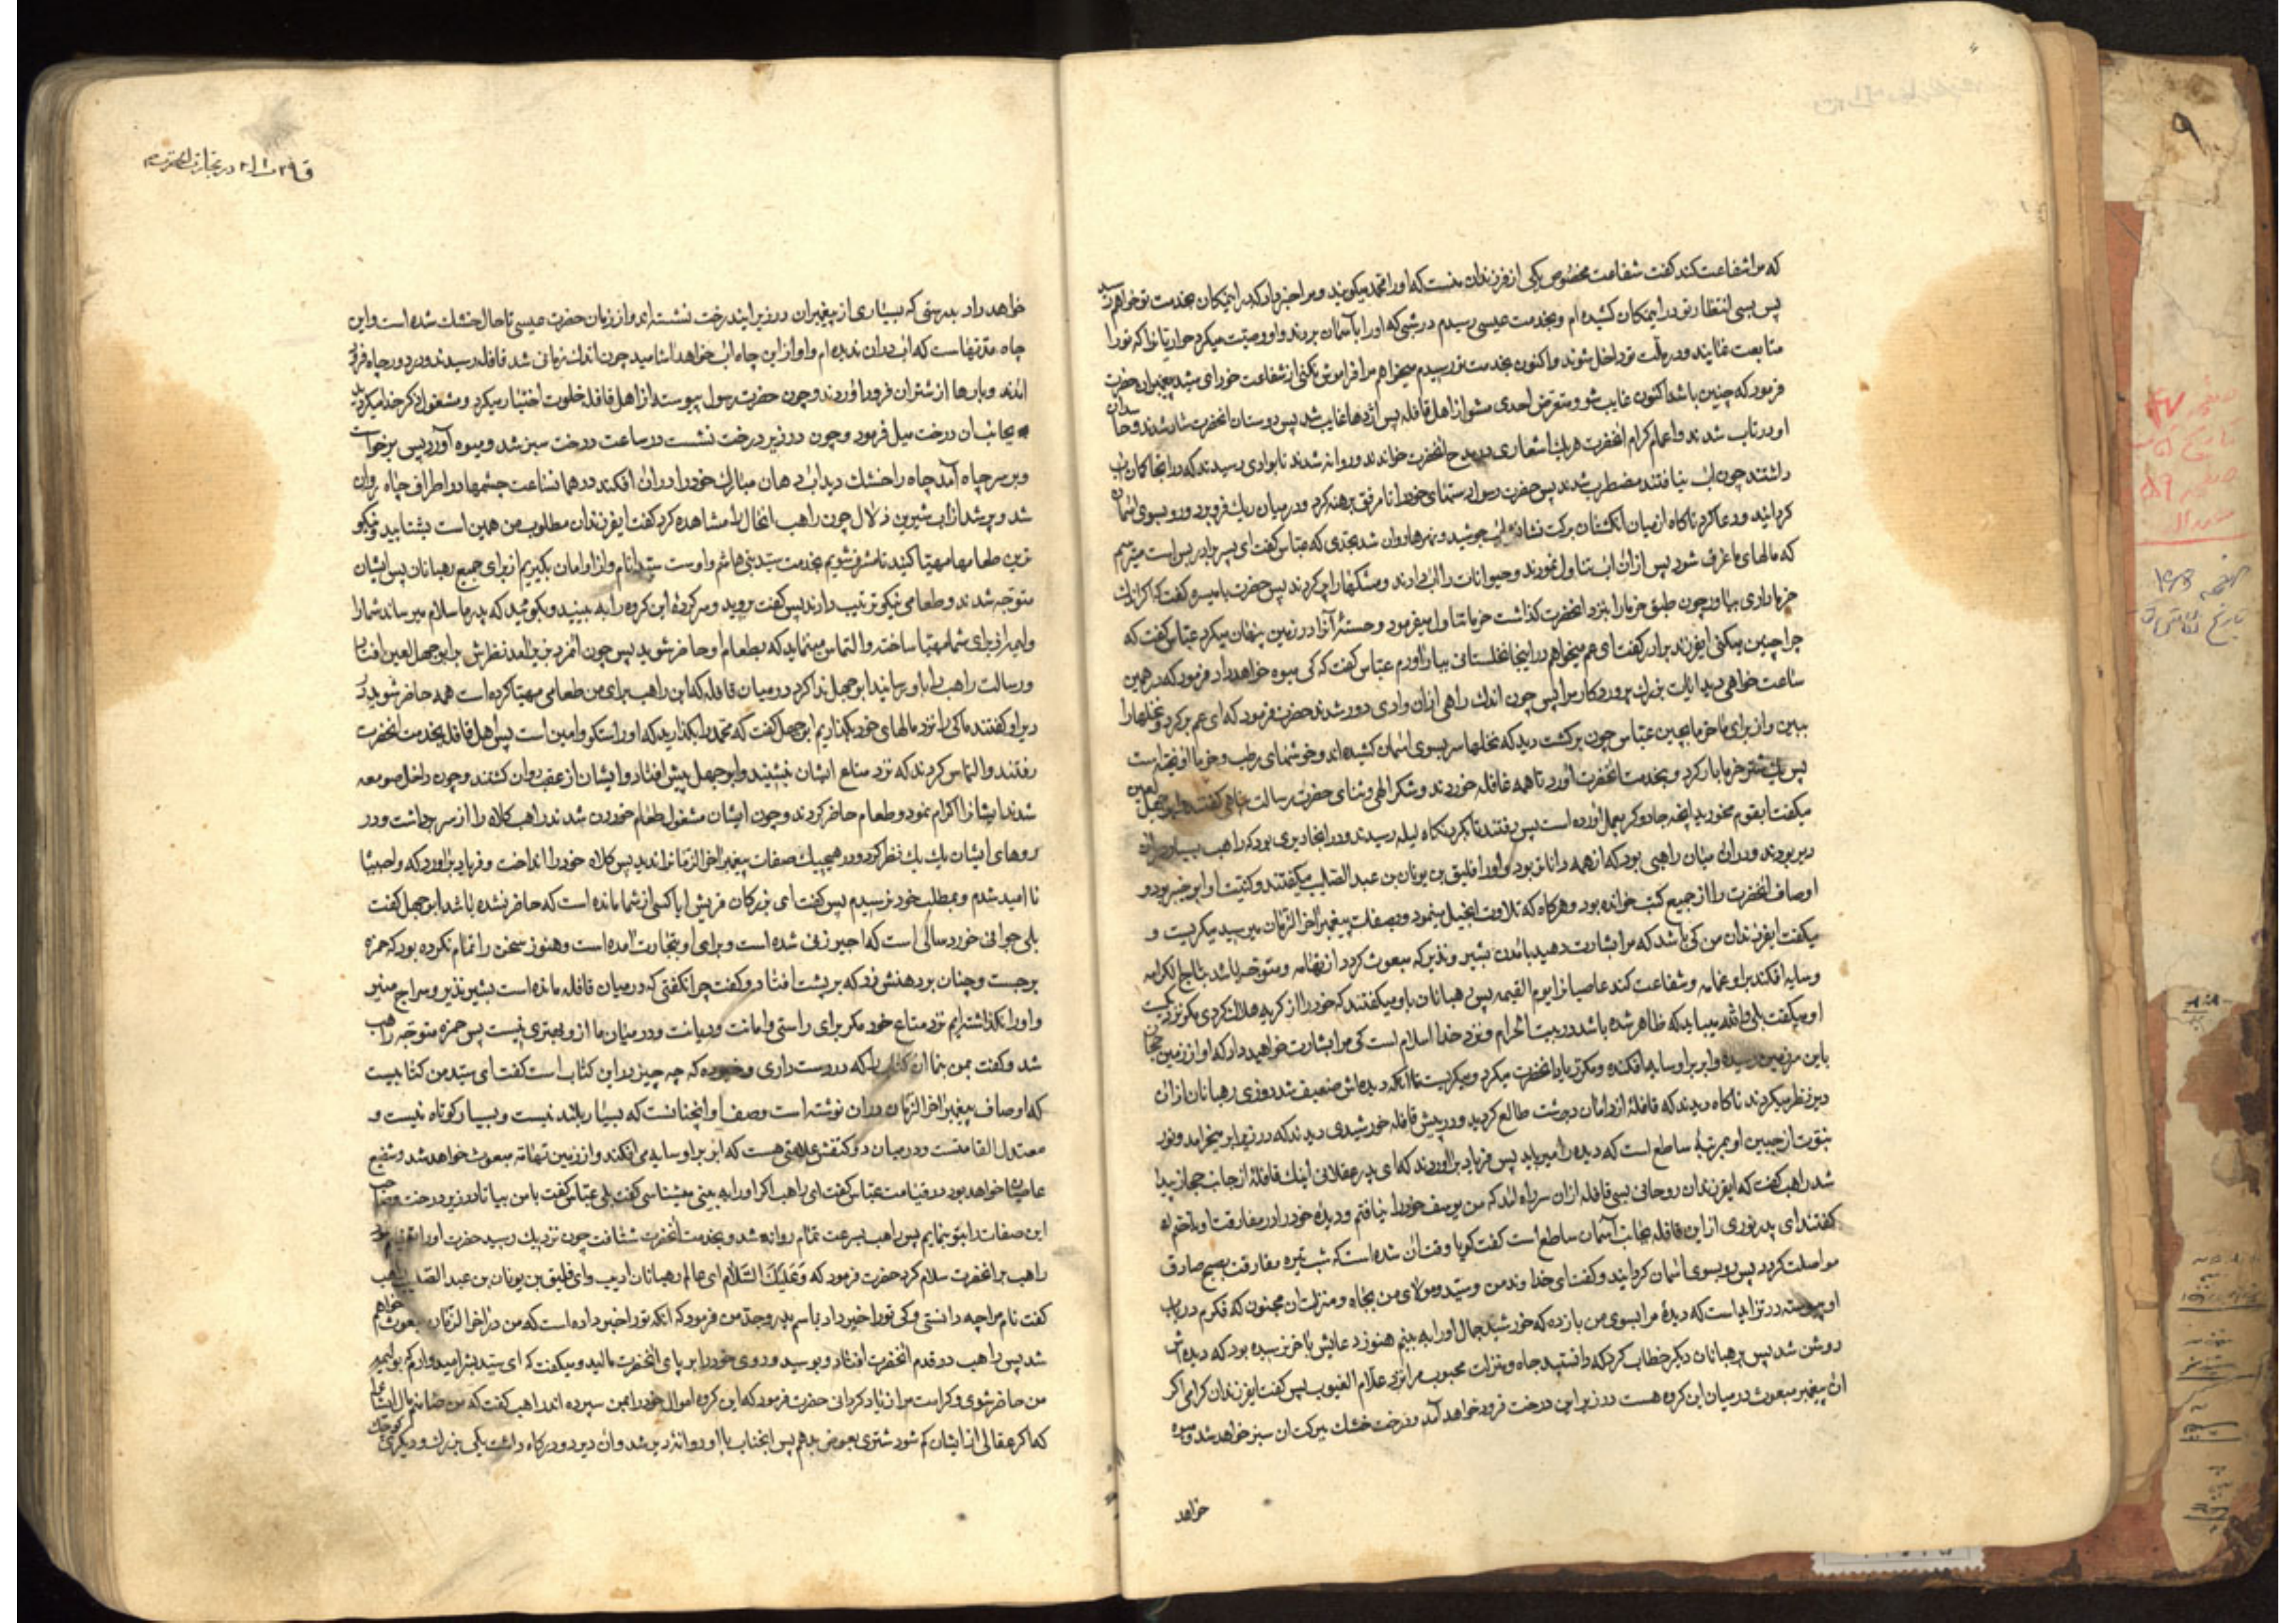 که مرا شفاعت کند گفت شفاعت مخصوص یکی از فرزندان منست که او را محمد میگویند و مرا خبر داد که در اینمکان بخدمت تو خواهم رسید
پس بسی انتظار تو در اینمکان کشیده ام و بخدمت عیسی رسیدم در شبی که او را بآسمان بردند و او وصیت میکرد حواریانرا که تو را
متابعت نمایند و در ملت تو داخل شوند و اکنون بخدمت تو رسیدم میخواهم مرا فراموش نکنی از شفاعت خود ای سید پیغمبران حضرت
فرمود که چنین باشد اکنون غایب شو و متعرض احدی مشو از اهل قافله پس اژدها غایب شد پس دوستان انحضرت شاد شدند و حاسدان
او در تاب شدند و اعمام کرام انحضرت هر یک اشعاری در مدح انحضرت خواندند و روانه شدند تا بوادی رسیدند که در انجا کمان اب
داشتند چون اب نیافتند مضطرب شدند پس حضرت رسول دستهای خود را تا مرفق برهنه کرد و در میان ریک فرو برد و رو بسوی اسمان
کردانید و دعا کرد ناکاه از میان انکشتان برکت نشانش اب جوشید و نهرها روان شد بحدی که عباس گفت ای پسر برادر بس است میترسم
که مالهای ما غرق شود پس از ان اب تناول نمودند و حیوانات را اب دادند و مشکها را پر کردند پس حضرت با میسره گفت که اکر اندک
خرما داری بیاور چون طبق خرما را بنزد انحضرت کذاشت خرما تناول میفرمود و هستهٔ آنرا در زمین پنهان میکرد عباس گفت که
چرا چنین میکنی ایفرزند برادر گفت ای عم میخواهم در اینجا نخلستانی بیار اورم عباس گفت که کی میوه خواهد داد فرمود که در همین
ساعت خواهی دید ایات بزرک پروردکار مرا پس چون اندک راهی از ان وادی دور شدند حضرت فرمود که ای عم بر کرد و نخلها را
ببین و از برای ما خرما بچین عباس چون بر کشت دید که نخلها سر بسوی اسمان کشیده اند و خوشهای رطب و خرما اویخته است
پس یک شتر خرما بار کرد و بخدمت انحضرت اورد تا همه قافله خوردند و شکر الهی و ثنای حضرت رسالت پناهی گفتند و ابو جهل لعین
میگفت ایقوم مخورید انچه جادوکر بعمل اورده است پس رفتند تا بکردنکاه ایله رسیدند و در انجا دیری بود که راهب بسیار در ان
دیر بودند و در ان میان راهبی بود که از همه داناتر بود و او را فلیق بن یونان بن عبد الصلیب میگفتند و کنیت او ابو خبیر بود و
اوصاف انحضرت را از جمیع کتب خوانده بود و هرکاه که تلاوت انجیل مینمود و بصفات پیغمبر اخر الزمان میرسید میکریست و
میگفت ایفرزندان من کی باشد که مرا بشارت دهید بامدن بشیر و نذیر که مبعوث کردد از تهامه و متوج باشد بتاج الکرامه
و سایه افکند بر او غمامه و شفاعت کند عاصیانرا یوم القیمه پس رهبانان باو میگفتند که خود را از کریه هلاک کردی مکر نزدیکست
او میگفت بلی والله میباید که ظاهر شده باشد در بیت الحرام و نزد خدا اسلام است کی مرا بشارت خواهید داد که او از زمین حجاز
باین سرزمین رسیده و ابر بر او سایه افکنده و مکرر یاد انحضرت میکرد و میکریست تا انکه دیده اش ضعیف شد روزی رهبانان از ان
دیر نظر میکردند ناکاه دیدند که قافلهٔ از دامان دشت طالع کردید و در پیش قافله خورشیدی دیدند که در زیر ابر میخرامد و نور
نبوت از جبین او بمرتبهٔ ساطع است که دیده را میرباید پس فریاد براوردند که ای پدر عقلانی اینک قافلهٔ از جانب حجاز پیدا
شد راهب گفت که ایفرزندان روحانی بسی قافله از ان سر راه امد که من یوسف خود را نیافتم و دیدهٔ خود را در مفارقت او باختم
گفتند ای پدر نوری از این قافله بجانب آسمان ساطع است گفت کویا وقت ان شده است که شب تیره مفارقت بصبح صادق
مواصلت کردد پس رو بسوی اسمان کردانید و گفت ای خداوند من و سید و مولای من بجاه و منزلت ان محبوبی که فکرم در باب
او پیوسته در تزاید است که دیدهٔ مرا بسوی من باز ده که خورشید جمال او را به بینم هنوز دعایش باخر نرسیده بود که دیده اش
روشن شد پس برهبانان دیکر خطاب کرد که دانستید جاه و منزلت محبوب مرا نزد علام الغیوب پس گفت ایفرزندان کرامی اکر
ان پیغمبر مبعوث در میان این کروه هست در زیر این درخت فرود خواهد آمد و درخت خشک ببرکت ان سبز خواهد شد و میوه
خواهد
خواهد داد بدرستی که بسیاری از پیغمبران در زیر ایندرخت نشسته اند و از زمان حضرت عیسی تا حال خشک شده است و این
چاه مدتهاست که اب در ان ندیده ام و او از این چاه اب خواهد اشامید چون اندک زمانی شد قافله رسیدند و در دور چاه فرود
امدند و بارها از شتران فرود اوردند و چون حضرت رسول پیوسته از اهل قافله خلوت اختیار میکرد و مشغول ذکر خدا میکردید
بجانب ان درخت میل فرمود و چون در زیر درخت نشست در ساعت درخت سبز شد و میوه آورد پس برخواست
و بر سر چاه آمد چاه را خشک دید اب دهان مبارک خود را در ان افکند در همان ساعت چشمها در اطراف چاه روان
شد و پر شد از اب شیرین زلال چون راهب انحال را مشاهده کرد گفت ایفرزندان مطلوب من همین است بشتابید و نیکو
ترین طعامها مهیا کنید تا مشرف شویم بخدمت سید بنی هاشم و اوست سید انام و از او امان بگیریم از برای جمیع رهبانان پس ایشان
متوجه شدند و طعامی نیکو ترتیب دادند پس گفت بروید و سرکردهٔ این کروه را به بینید و بکوئید که پدر ما سلام میرساند شما را
و ولیمهٔ از برای شما مهیا ساخته و التماس مینماید که بطعام او حاضر شوید پس چون انمرد بزیر امد نظرش بر ابو جهل لعین افتاد
و رسالت راهب را باو رسانید ابو جهل ندا کرد در میان قافله که این راهب برای من طعامی مهیا کرده است همه حاضر شوید در
دیر او گفتند ما کی را نزد مالهای خود بکذاریم ابو جهل گفت که محمد را بکذارید که او راستکو و امین است پس اهل قافله بخدمت انحضرت
رفتند و التماس کردند که نزد متاع ایشان بنشیند و ابو جهل پیش افتاد و ایشان از عقب روان کشتند و چون داخل صومعه
شدند ایشانرا اکرام نمود و طعام حاضر کردند و چون ایشان مشغول طعام خوردن شدند راهب کلاه را از سر برداشت و در
روهای ایشان یک یک نظر کرد و در هیچیک صفات پیغمبر اخر الزمان را ندید پس کلاه خود را انداخت و فریاد براورد که واخیبتا
نا امید شدم و بمطلب خود نرسیدم پس گفت ای بزرکان قریش ایا کسی از شما مانده است که حاضر نشده باشد ابو جهل گفت
بلی جوانی خورد سالی است که اجیر زنی شده است و برای او بتجارت امده است و هنوز سخن را تمام نکرده بود که حمزه
برجست و چنان بر دهنش زد که بر پشت افتاد و گفت چرا نکفتی که در میان قافله مانده است بشیر نذیر و سراج منیر
و او را نکذاشته ایم نزد متاع خود مکر برای راستی و امانت و دیانت و در میان ما از و بهتری نیست پس حمزه متوجه راهب
شد و گفت بمن بنما ان کتاب را که در دست داری و خبر ده که چه چیز در این کتاب است گفت ای سید من کتابیست
که اوصاف پیغمبر اخر الزمان در ان نوشته است وصف او انچنانست که بسیار بلند نیست و بسیار کوتاه نیست و
معتدل القامتست و در میان دو کتفش علامتی هست که ابر بر او سایه می افکند و از زمین تهامه مبعوث خواهد شد و شفیع
عاصیان خواهد بود در قیامت عباس گفت ای راهب اکر او را به بینی میشناسی گفت بلی عباس گفت با من بیا تا در زیر درخت صاحب
این صفات را بتو بنمایم پس راهب بسرعت تمام روانه شد و بخدمت انحضرت شتافت چون نزدیک رسید حضرت او را تعظیم نمود
راهب بر انحضرت سلام کرد حضرت فرمود که وَعَلَیْکَ السَّلَام ای عالم رهبانان ادیب و ای فلیق بن یونان بن عبد الصلیب راهب
گفت نام مرا چه دانستی و کی تو را خبر داد باسم پدر و جد من فرمود که انکه تو را خبر داده است که من در اخر الزمان مبعوث خواهم
شد پس راهب در قدم انحضرت افتاد و بوسید و روی خود را بر پای انحضرت مالید و میکفت که ای سید بشر امیدوارم که بولیمهٔ
من حاضر شوی و کرامت مرا زیاد کردانی حضرت فرمود که این کروه اموال خود را بمن سپرده اند راهب گفت که من ضامنم مال ایشانرا
که اکر عقالی از ایشان کم شود شتری بعوض بدهم پس انجناب با او روانهٔ دیر شد و ان دیر دو درکاه داشت یکی بزرک و دیکری کوچک